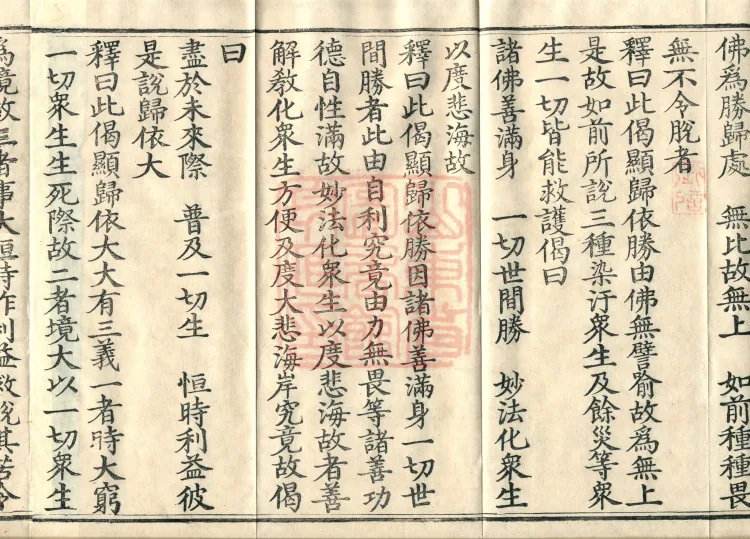 佛爲勝歸處　無比故無上　如前種種畏
無不令脫者
釋曰此偈顯歸依勝由佛無譬喻故爲無上
是故如前所說三種染汙衆生及餘災等衆
生一切皆能救護偈曰
諸佛善滿身　一切世間勝　妙法化衆生
以度悲海故
釋曰此偈顯歸依勝因諸佛善滿身一切世
間勝者此由自利究竟由力無畏等諸善功
德自性滿故妙法化衆生以度悲海故者善
解教化衆生方便及度大悲海岸究竟故偈
曰
盡於未來際　普及一切生　恒時利益彼
是說歸依大
釋曰此偈顯歸依大大有三義一者時大窮
一切衆生生死際故二者境大以一切衆生
爲境故三者事大恒時作利益救脫其苦令